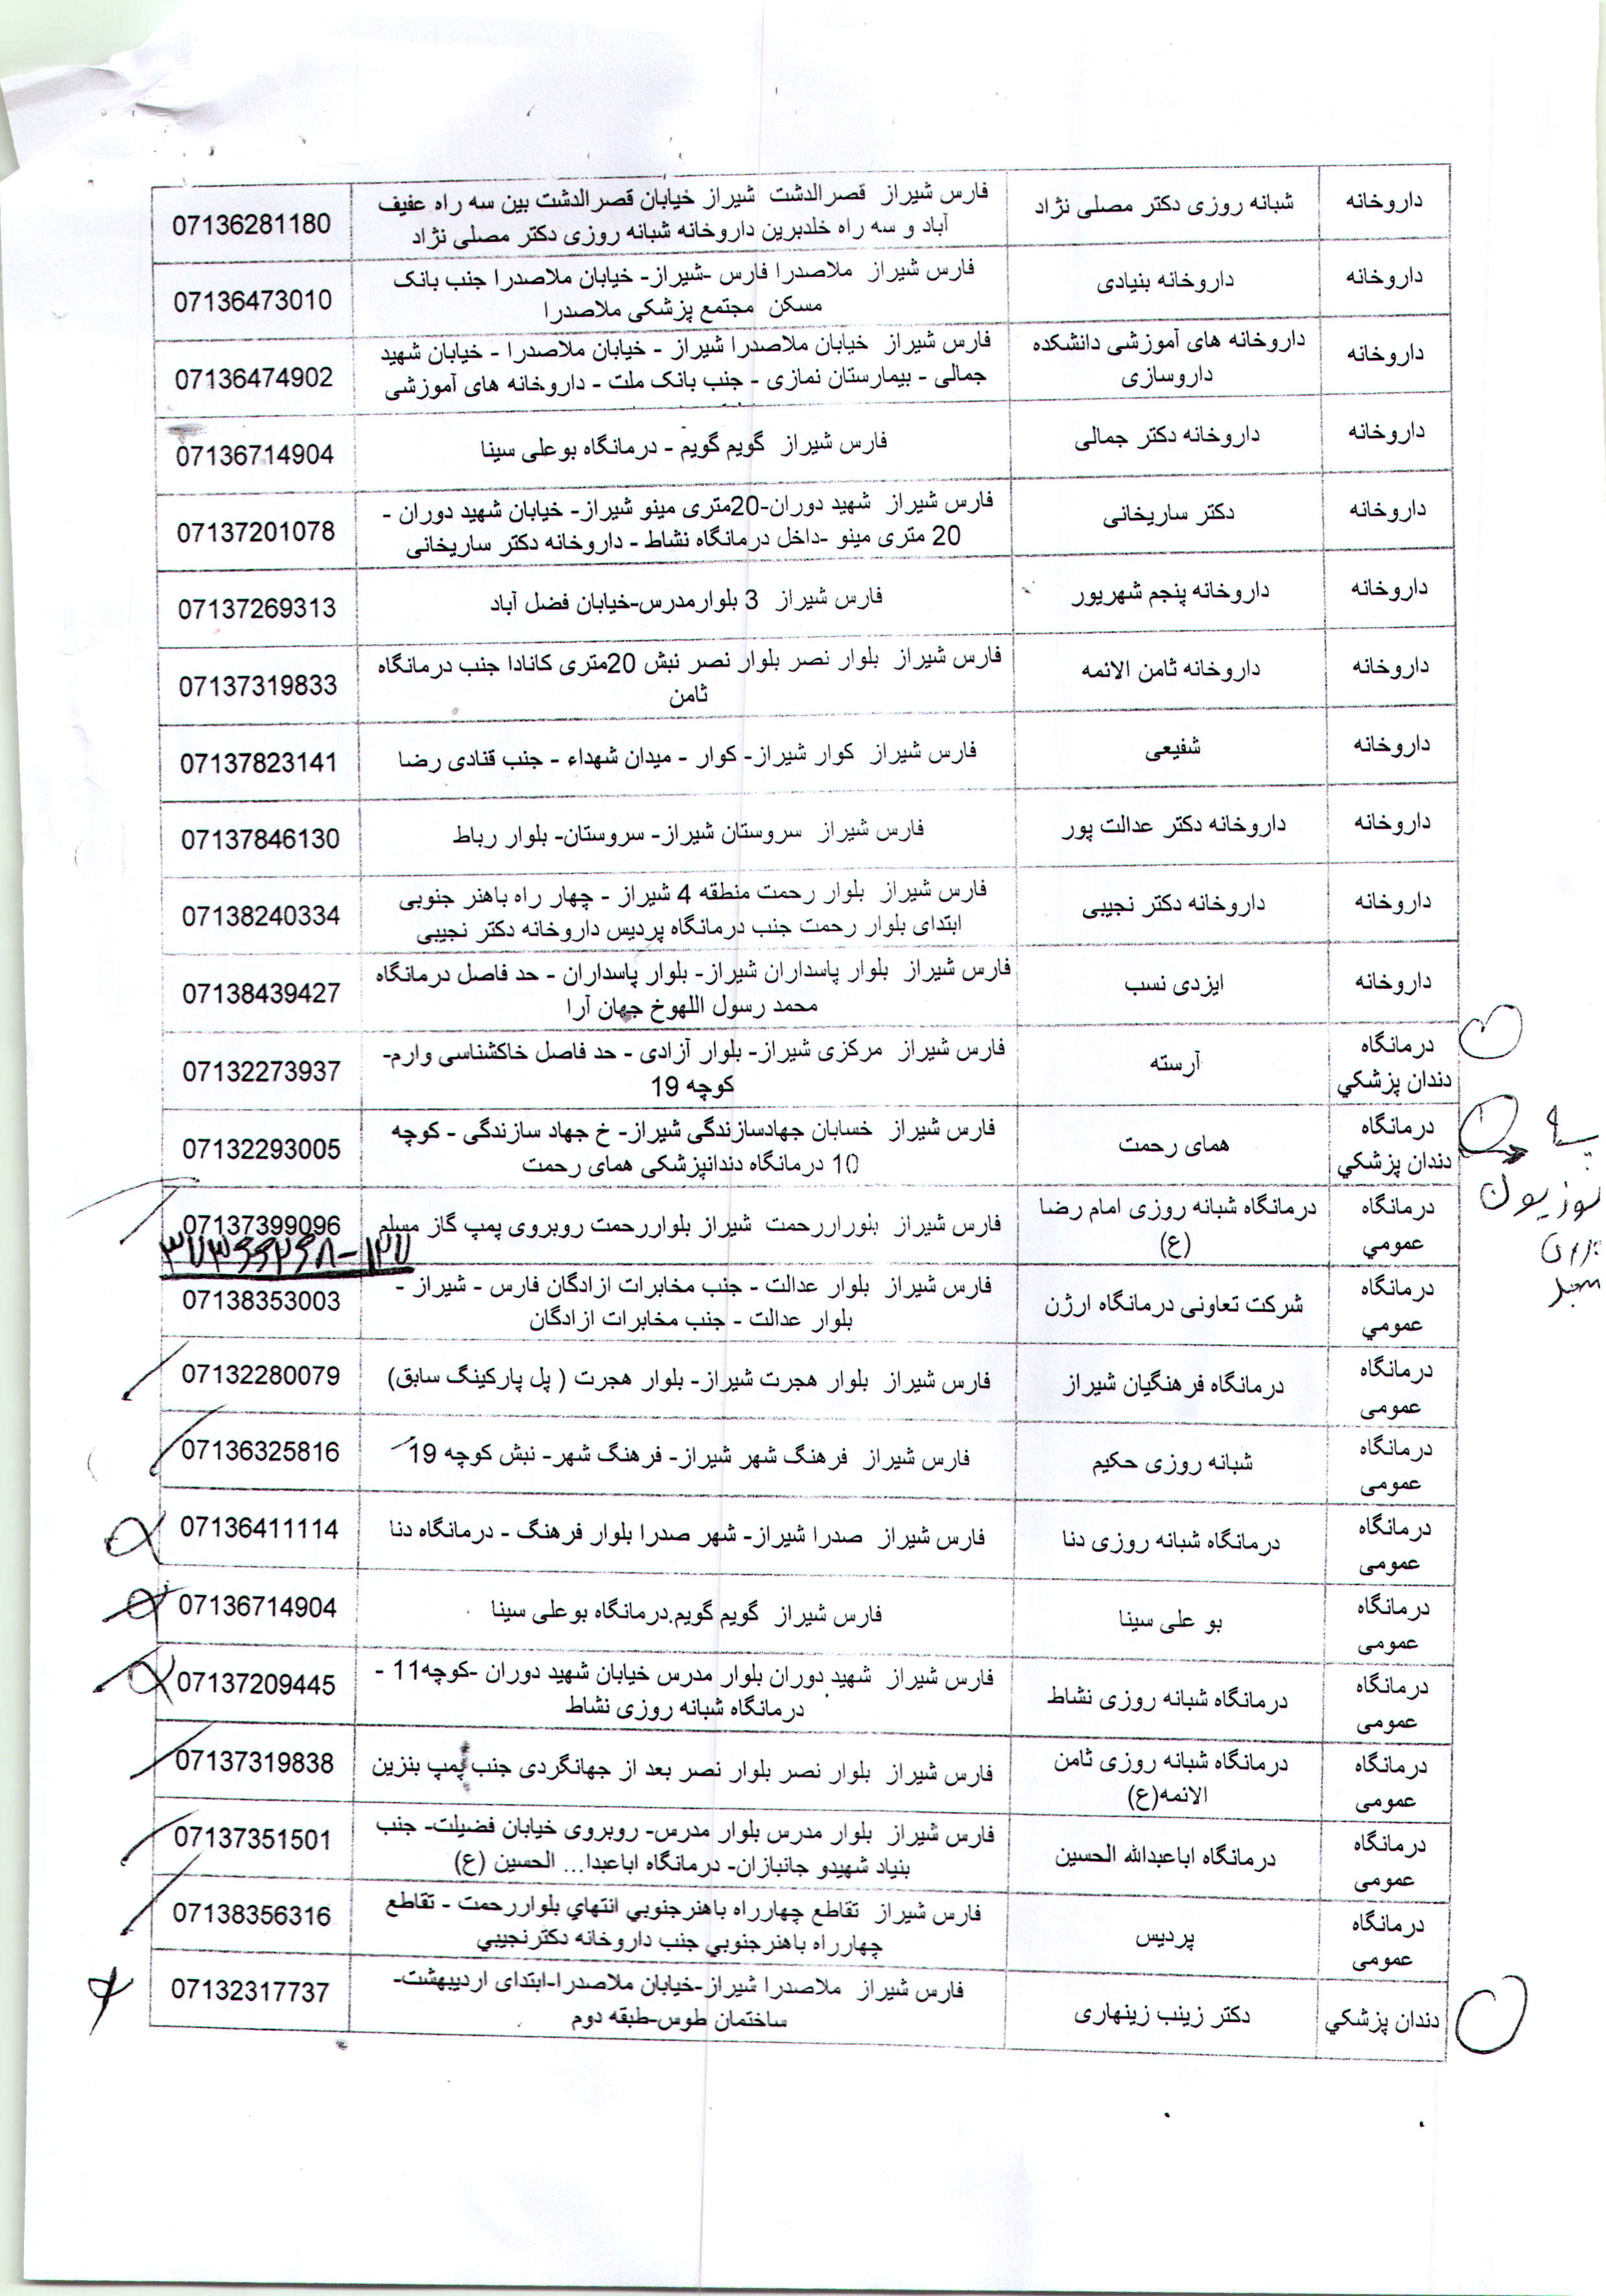 داروخانه
شبانه روزی دکتر مصلی نژاد
فارس شیراز قصرالدشت شیراز خیابان قصرالدشت بین سه راه عفیف
آباد و سه راه خلدبرین داروخانه شبانه روزی دکتر مصلی نژاد
07136281180
داروخانه
داروخانه بنیادی
فارس شیراز ملاصدرا فارس -شیراز- خیابان ملاصدرا جنب بانک
مسکن مجتمع پزشکی ملاصدرا
07136473010
داروخانه
داروخانه های آموزشی دانشکده
داروسازی
فارس شیراز خیابان ملاصدرا شیراز - خیابان ملاصدرا - خیابان شهید
جمالی - بیمارستان نمازی - جنب بانک ملت - داروخانه های آموزشی
07136474902
داروخانه
داروخانه دکتر جمالی
فارس شیراز گویم گویم - درمانگاه بوعلی سینا
07136714904
داروخانه
دکتر ساریخانی
فارس شیراز شهید دوران-20متری مینو شیراز- خیابان شهید دوران -
20 متری مینو -داخل درمانگاه نشاط - داروخانه دکتر ساریخانی
07137201078
داروخانه
داروخانه پنجم شهریور
فارس شیراز 3 بلوارمدرس-خیابان فضل آباد
07137269313
داروخانه
داروخانه ثامن الائمه
فارس شیراز بلوار نصر بلوار نصر نبش 20متری کانادا جنب درمانگاه
ثامن
07137319833
داروخانه
شفیعی
فارس شیراز کوار شیراز- کوار - میدان شهداء - جنب قنادی رضا
07137823141
داروخانه
داروخانه دکتر عدالت پور
فارس شیراز سروستان شیراز- سروستان- بلوار رباط
07137846130
داروخانه
داروخانه دکتر نجیبی
فارس شیراز بلوار رحمت منطقه 4 شیراز - چهار راه باهنر جنوبی
ابتدای بلوار رحمت جنب درمانگاه پردیس داروخانه دکتر نجیبی
07138240334
داروخانه
ایزدی نسب
فارس شیراز بلوار پاسداران شیراز- بلوار پاسداران - حد فاصل درمانگاه
محمد رسول اللهوخ جهان آرا
07138439427
درمانگاه
دندان پزشكي
آرسته
فارس شیراز مرکزی شیراز- بلوار آزادی - حد فاصل خاکشناسی وارم-
کوچه 19
07132273937
درمانگاه
دندان پزشكي
همای رحمت
فارس شیراز خسابان جهادسازندگی شیراز- خ جهاد سازندگی - کوچه
10 درمانگاه دندانپزشکی همای رحمت
07132293005
درمانگاه
عمومي
درمانگاه شبانه روزی امام رضا
(ع)
فارس شیراز بلوراررحمت شیراز بلواررحمت روبروی پمپ گاز مسلم
07137399096
۳۷۳۶۶۲۶۸-۱۲۷
درمانگاه
عمومي
شرکت تعاونی درمانگاه ارژن
فارس شیراز بلوار عدالت - جنب مخابرات ازادگان فارس - شیراز -
بلوار عدالت - جنب مخابرات ازادگان
07138353003
درمانگاه
عمومی
درمانگاه فرهنگیان شیراز
فارس شیراز بلوار هجرت شیراز- بلوار هجرت ( پل پارکینگ سابق)
07132280079
درمانگاه
عمومی
شبانه روزی حکیم
فارس شیراز فرهنگ شهر شیراز- فرهنگ شهر- نبش کوچه 19
07136325816
درمانگاه
عمومی
درمانگاه شبانه روزی دنا
فارس شیراز صدرا شیراز- شهر صدرا بلوار فرهنگ - درمانگاه دنا
07136411114
درمانگاه
عمومی
بو علی سینا
فارس شیراز گویم گویم.درمانگاه بوعلی سینا
07136714904
درمانگاه
عمومی
درمانگاه شبانه روزی نشاط
فارس شیراز شهید دوران بلوار مدرس خیابان شهید دوران -کوچه11 -
درمانگاه شبانه روزی نشاط
07137209445
درمانگاه
عمومی
درمانگاه شبانه روزی ثامن
الائمه(ع)
فارس شیراز بلوار نصر بلوار نصر بعد از جهانگردی جنب پمپ بنزین
07137319838
درمانگاه
عمومی
درمانگاه اباعبدالله الحسین
فارس شیراز بلوار مدرس بلوار مدرس- روبروی خیابان فضیلت- جنب
بنیاد شهیدو جانبازان- درمانگاه اباعبدا... الحسین (ع)
07137351501
درمانگاه
عمومی
پردیس
فارس شیراز تقاطع چهارراه باهنرجنوبي انتهاي بلواررحمت - تقاطع
چهارراه باهنرجنوبي جنب داروخانه دکترنجيبي
07138356316
دندان پزشكي
دکتر زینب زینهاری
فارس شیراز ملاصدرا شیراز-خیابان ملاصدرا-ابتدای اردیبهشت-
ساختمان طوس-طبقه دوم
07132317737